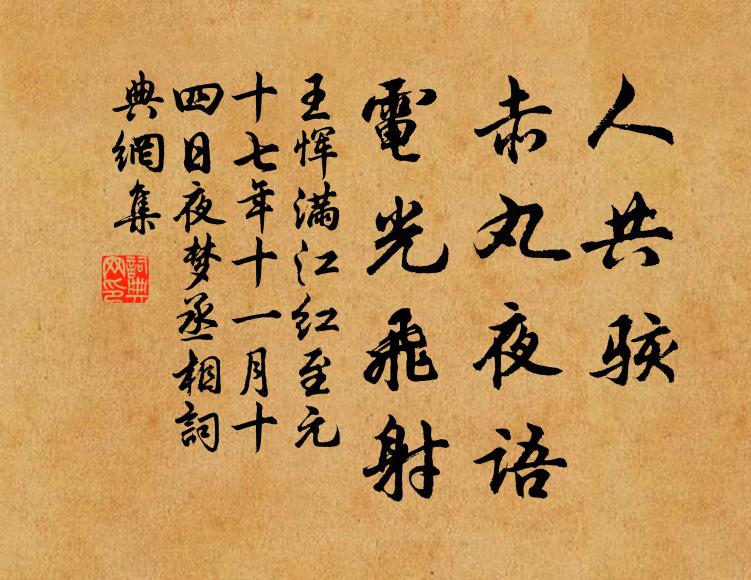 人共骇
赤丸夜语
電光飛射
王恽满江红至元
十七年十一月十
四日夜梦丞相詞
典網集
詞典網印